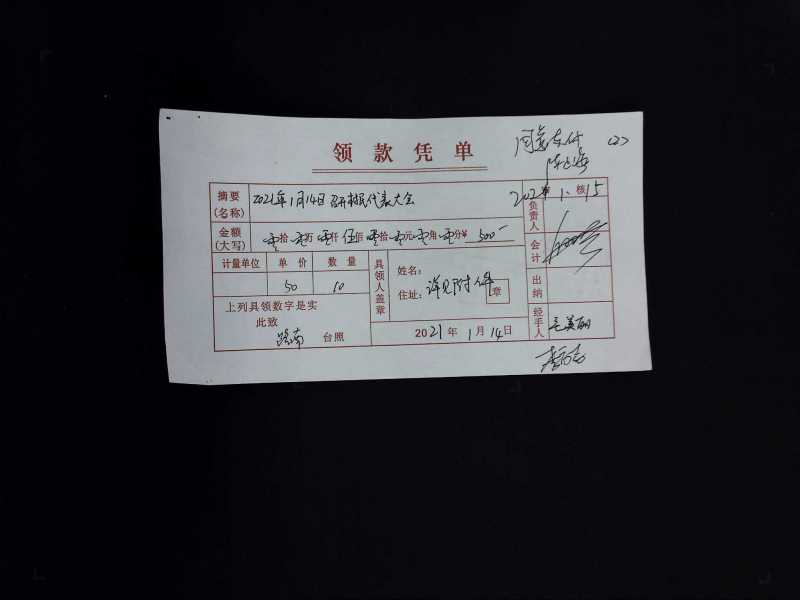 领款凭单
同意支付 (2)
2021.1.15
摘要(名称) 2021年1月14日召开村民代表大会
核
负责人
金额(大写) 零拾零万零仟伍佰零拾零元零角零分¥ 500-
会计
计量单位 单价 数量
50 10
具领人盖章
姓名:
住址: 详见附件 章
出纳
上列具领数字是实
此致
路南 台照
2021年1月14日
经手人 美丽